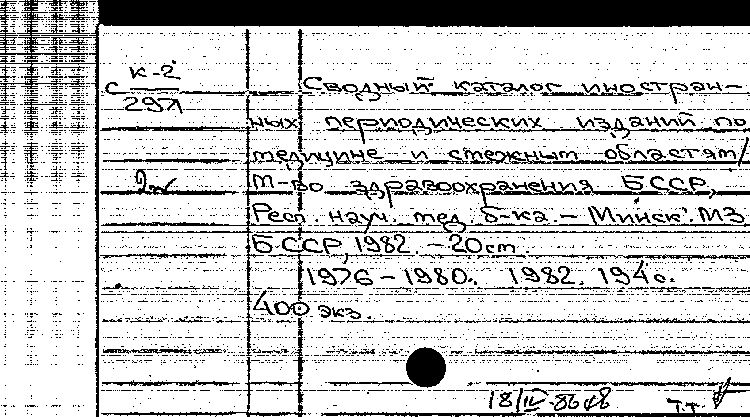 с к-2
297
Сводный каталог иностран-
ных периодических изданий по
медицине и смежным областям/
М-во здравоохранения БССР,
Респ. науч. мед. б-ка. – Минск: МЗ
БССР, 1982. – 20 см.
1976 – 1980. 1982. 194 с.
400 экз.
18/IV-86